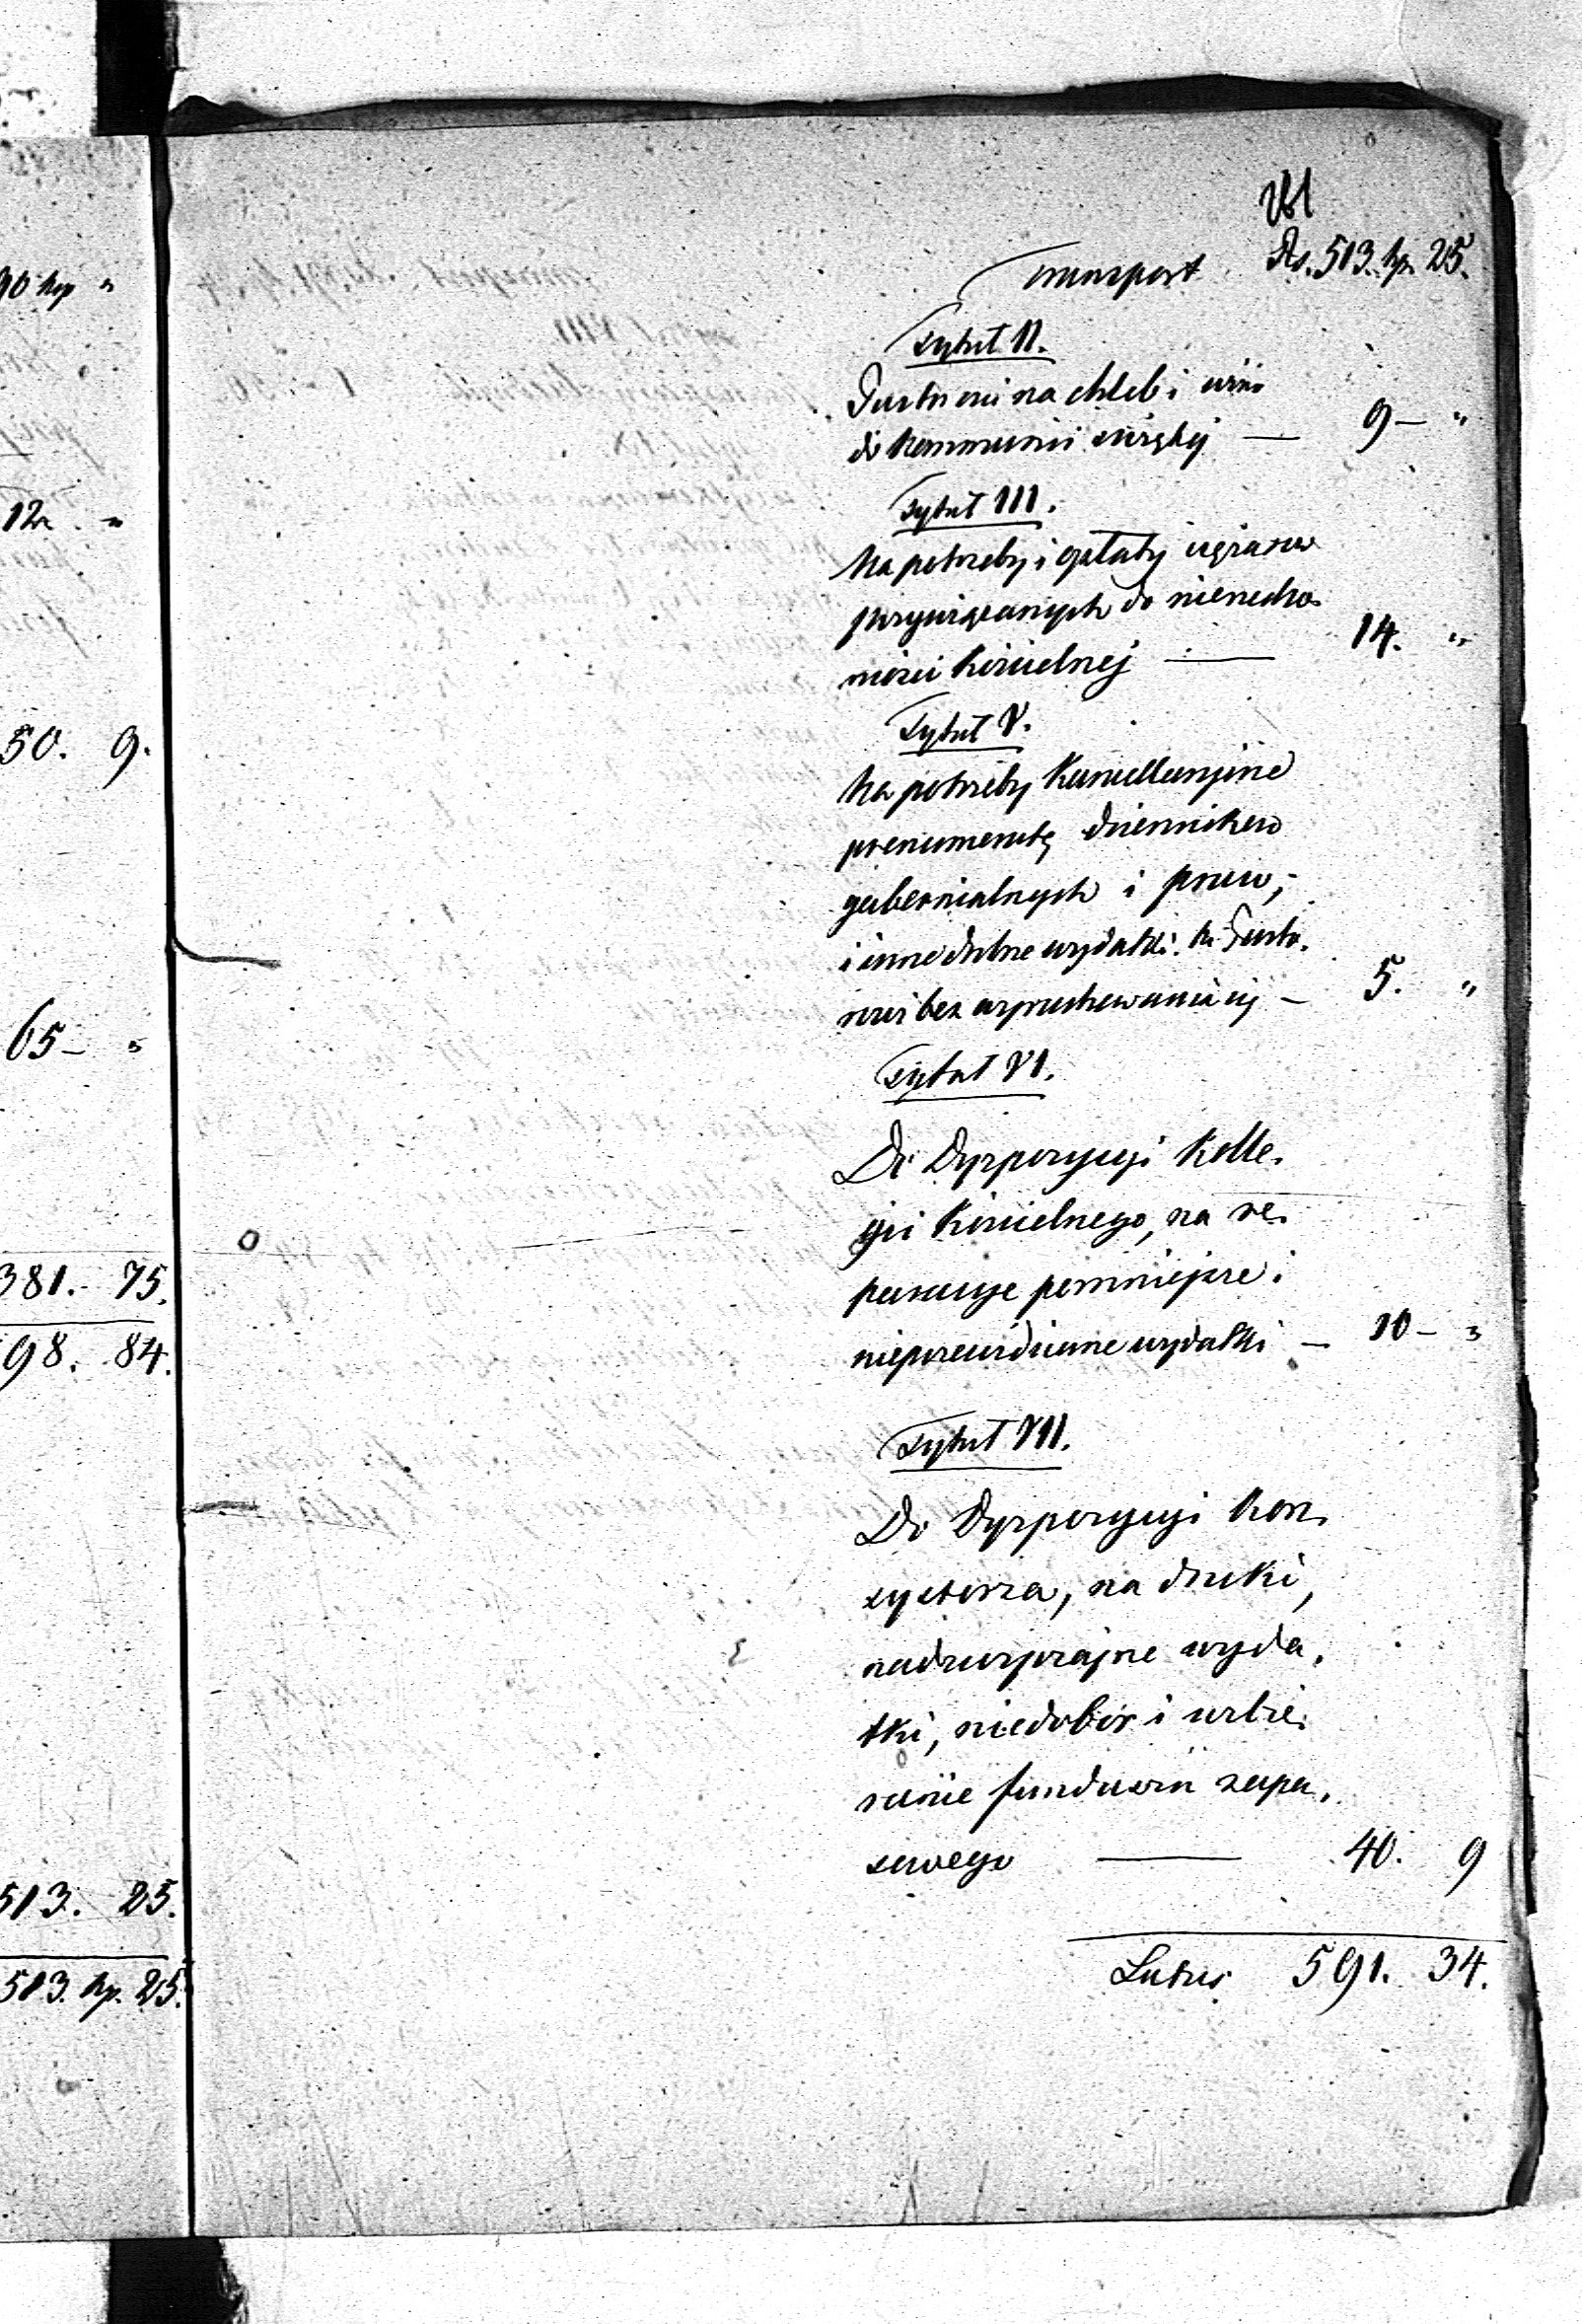 90 kop "
12 . "
50. 9.
65 — "
381. 75.
98. 84.
513. 25.
513. kp. 25.
Transport Rs. 513. kp. 25.
Tytuł II.
Pastorowi na chleb i wino
do Kommunii świętej — 9 — "
Tytuł III.
Na potrzeby i opłaty ciężarów
przywiązanych do nierucho-
mości Kościelnej — 14. "
Tytuł V.
Na potrzeby Kancellaryjne
prenumeratę dzienników
gubernialnych i praw,
i inne drobne wydatki Pasto-
rowi bez wyrachowania się — 5. "
Tytuł VI.
Do Dyspozycyi Kolle-
gii Kościelnego, na re-
paracye pomniejsze i
nieprzewidziane wydatki — 10 — "
Tytuł VII.
Do Dyspozycyi Kon-
systorza, na druki,
nadzwyczajne wyda-
tki, niedobór i uzbie-
ranie funduszu zapa-
sowego — 40. 9
Latus 591. 34.